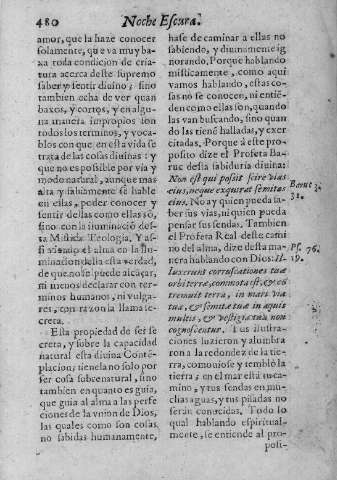 480 Noche Escura.
amor, que la haze conocer
solamente, que va muy ba-
xa toda condicion de cria-
tura acerca deste supremo
saber y sentir divino; sino
tambien echa de ver quan
baxos, y cortos, y en algu-
na manera impropios son
todos los terminos, y voca-
blos con que en esta vida se
trata de las cosas divinas: y
que no es possible por via y
modo natural, aunque mas
alta y sabiamente se hable
en ellas, poder conocer y
sentir dellas como ellas sō,
sino con la iluminaciō des-
ta Mistica Teologia. Y as-
si viendo el alma en la ilu-
minacion della esta verdad,
de que no se puede alcāçar,
ni menos declarar con ter-
minos humanos, ni vulga-
res, con razon la llama se-
creta.
Esta propiedad de ser se
creta, y sobre la capacidad
natural esta divina Contē-
placion; tienela no solo por
ser cosa sobrenatural, sino
tambien en quanto es guia,
que guia al alma a las perfe
ciones de la vnion de Dios,
las quales como son cosas
no sabidas humanamente,
hase de caminar a ellas no
sabiendo, y divinamente ig
norando. Porque hablando
misticamente, como aqui
vamos hablando, estas co-
sas no se conocen, ni entiē-
den como ellas son, quando
las van buscando, sino quan
do las tienē halladas, y exer
citadas. Porque à este pro-
posito dize el Profeta Ba-
ruc desta sabiduria divina:
Non est qui possit scire vias
eius, neque exquirat semitas
eius. No ay quien pueda sa-
ber sus vias, ni quien pueda
pensar sus sendas. Tambien
el Profeta Real deste cami
no del alma, dize desta ma-
nera hablando con Dios: Il-
luxerunt corruscationes tuæ
orbi terræ, commota est, & cō
tremuit terra, in mari via
tua, & semitæ tuæ in aquis
multis, & vestigia tua non
cognoscentur. Tus ilustra-
ciones luzieron y alumbra
ron a la redondez de la tie-
rra, comoviose y temblò la
tierra; en el mar està tu ca-
mino, y tus sendas en mu-
chas aguas, y tus pisadas no
seràn conocidas. Todo lo
qual hablando espiritual-
mente, se entiende al pro-
posi-
Baruc 3.
31.
Ps. 76.
19.